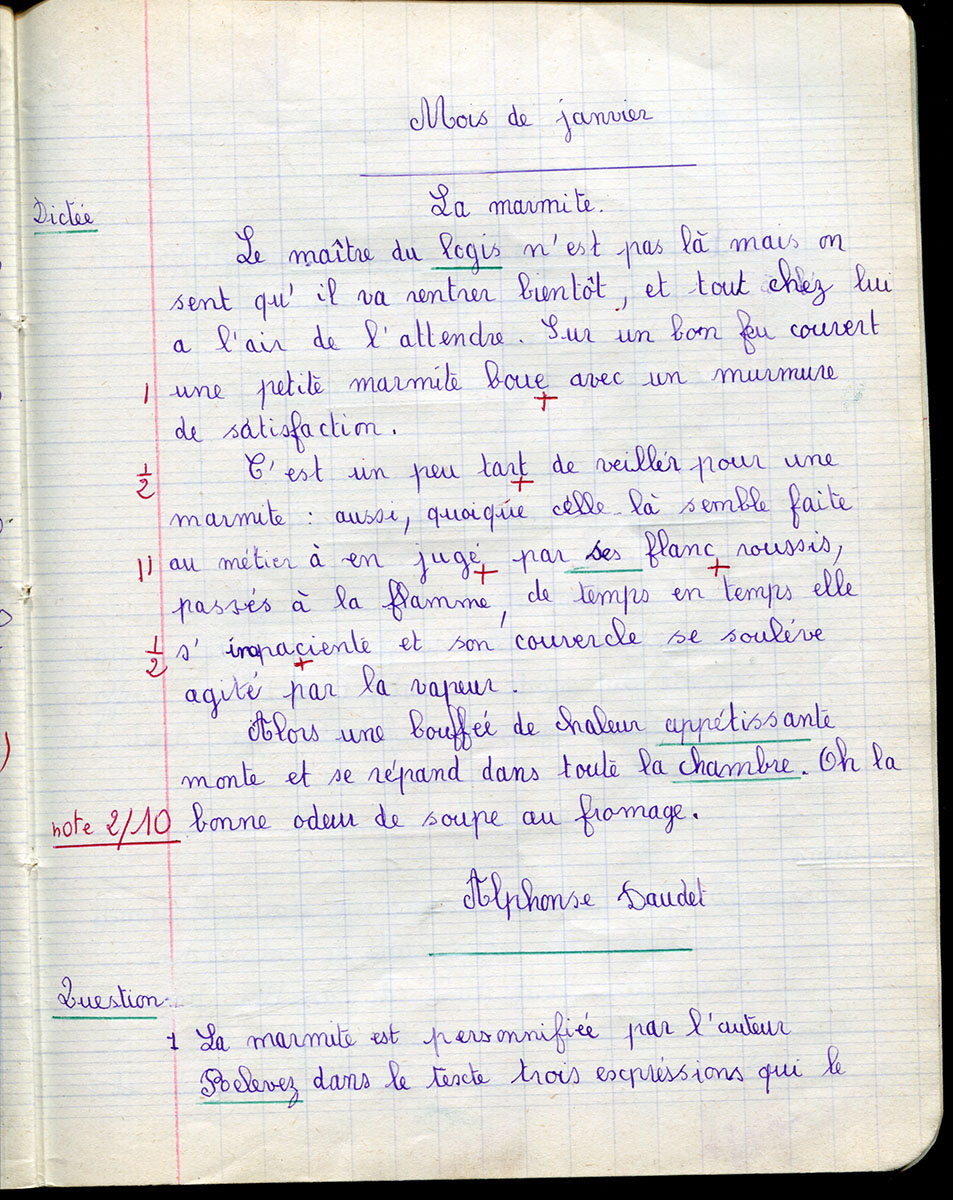 Mois de janvier
La marmite.
Dictée
Le maître du logis n'est pas là mais on
sent qu'il va rentrer bientôt, et tout chez lui
a l'air de l'attendre. Sur un bon feu couvert
1 une petite marmite boue avec un murmure
de satisfaction.
1/2 C'est un peu tart de veiller pour une
marmite : aussi, quoique celle-là semble faite
11 au métier à en jugé par ses flanc roussis,
passés à la flamme, de temps en temps elle
1/2 s'impaciente et son couvercle se soulève
agité par la vapeur.
Alors une bouffée de chaleur appétissante
monte et se répand dans toute la chambre. Oh la
note 2/10 bonne odeur de soupe au fromage.
Alphonse Daudet
Question
1 La marmite est personnifiée par l'auteur
Relevez dans le texte trois expréssions qui le